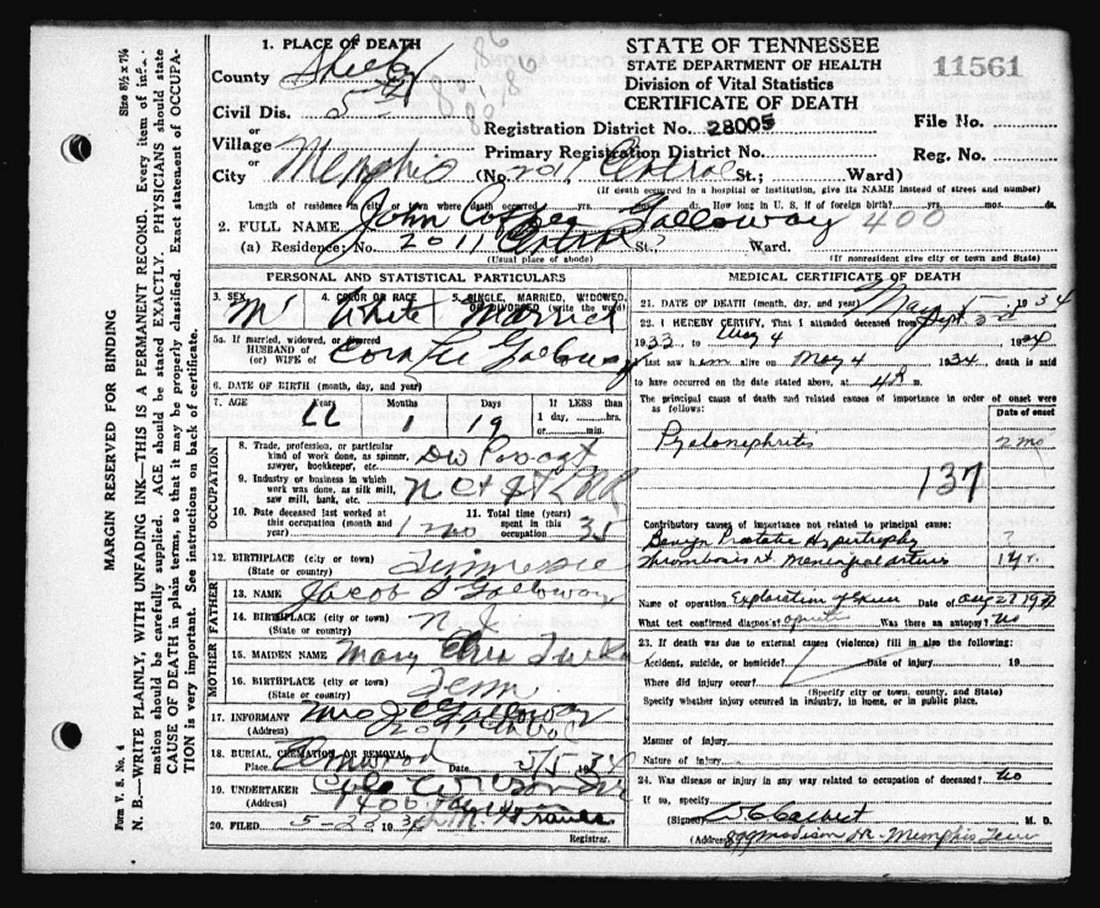 1. PLACE OF DEATH
County Shelby
Civil Dis. 5
or
Village
or
City Memphis (No. 2011 Central St.; Ward)
STATE OF TENNESSEE
STATE DEPARTMENT OF HEALTH
Division of Vital Statistics
CERTIFICATE OF DEATH
11561
Registration District No. 28005 File No.
Primary Registration District No. Reg. No.
(If death occurred in a hospital or institution, give its NAME instead of street and number)
Length of residence in city or town where death occurred yrs. mos. ds. How long in U. S. if of foreign birth? yrs. mos. ds.
2. FULL NAME John Galloway 400
(a) Residence: No. 2011 Central St., Ward.
(Usual place of abode) (If nonresident give city or town and State)
PERSONAL AND STATISTICAL PARTICULARS
3. SEX 4. COLOR OR RACE 5. SINGLE, MARRIED, WIDOWED, OR DIVORCED (write the word)
M White Married
5a. If married, widowed, or divorced
HUSBAND of
(or) WIFE of Cora Lee Galloway
6. DATE OF BIRTH (month, day, and year)
7. AGE Years Months Days If LESS than
1 day, hrs.
or min.
1 19
OCCUPATION
8. Trade, profession, or particular
kind of work done, as spinner,
sawyer, bookkeeper, etc.
9. Industry or business in which
work was done, as silk mill,
saw mill, bank, etc. N C & St L RR
10. Date deceased last worked at
this occupation (month and
year) 1 mo
11. Total time (years)
spent in this
occupation 35
12. BIRTHPLACE (city or town)
(State or country) Tennessee
FATHER
13. NAME Jacob S Galloway
14. BIRTHPLACE (city or town)
(State or country) N J
MOTHER
15. MAIDEN NAME Mary
16. BIRTHPLACE (city or town)
(State or country) Tenn
17. INFORMANT Mrs J C Galloway
(Address) 2011 Central
18. BURIAL, CREMATION OR REMOVAL
Place Elmwood Date 5/5 1934
19. UNDERTAKER
(Address) 1400
20. FILED 5-23 1934 L M Graves
Registrar.
MEDICAL CERTIFICATE OF DEATH
21. DATE OF DEATH (month, day, and year) May 5 1934
22. I HEREBY CERTIFY, That I attended deceased from Sept 3rd
1933 to May 4 1934
I last saw him alive on May 4 1934, death is said
to have occurred on the date stated above, at 4 A m.
The principal cause of death and related causes of importance in order of onset were
as follows: Date of onset
Pyelonephritis 2 mo
137
Contributory causes of importance not related to principal cause:
Benign Prostatic Hypertrophy ?
Thrombosis rt. Meningeal arteries 1 yr.
Name of operation Exploration of Date of Aug 27 19
What test confirmed diagnosis? Was there an autopsy? No
23. If death was due to external causes (violence) fill in also the following:
Accident, suicide, or homicide? Date of injury 19
Where did injury occur?
(Specify city or town, county, and State)
Specify whether injury occurred in industry, in home, or in public place.
Manner of injury
Nature of injury
24. Was disease or injury in any way related to occupation of deceased? No
If so, specify
(Signed) M. D.
(Address) 899 Madison Av. Memphis Tenn
MARGIN RESERVED FOR BINDING
Form V. S. No. 4 Size 8½ x 7¼
N. B.—WRITE PLAINLY, WITH UNFADING INK—THIS IS A PERMANENT RECORD. Every item of
mation should be carefully supplied. AGE should be stated EXACTLY. PHYSICIANS should state
CAUSE OF DEATH in plain terms, so that it may be properly classified. Exact statement of OCCUPA-
TION is very important. See instructions on back of certificate.